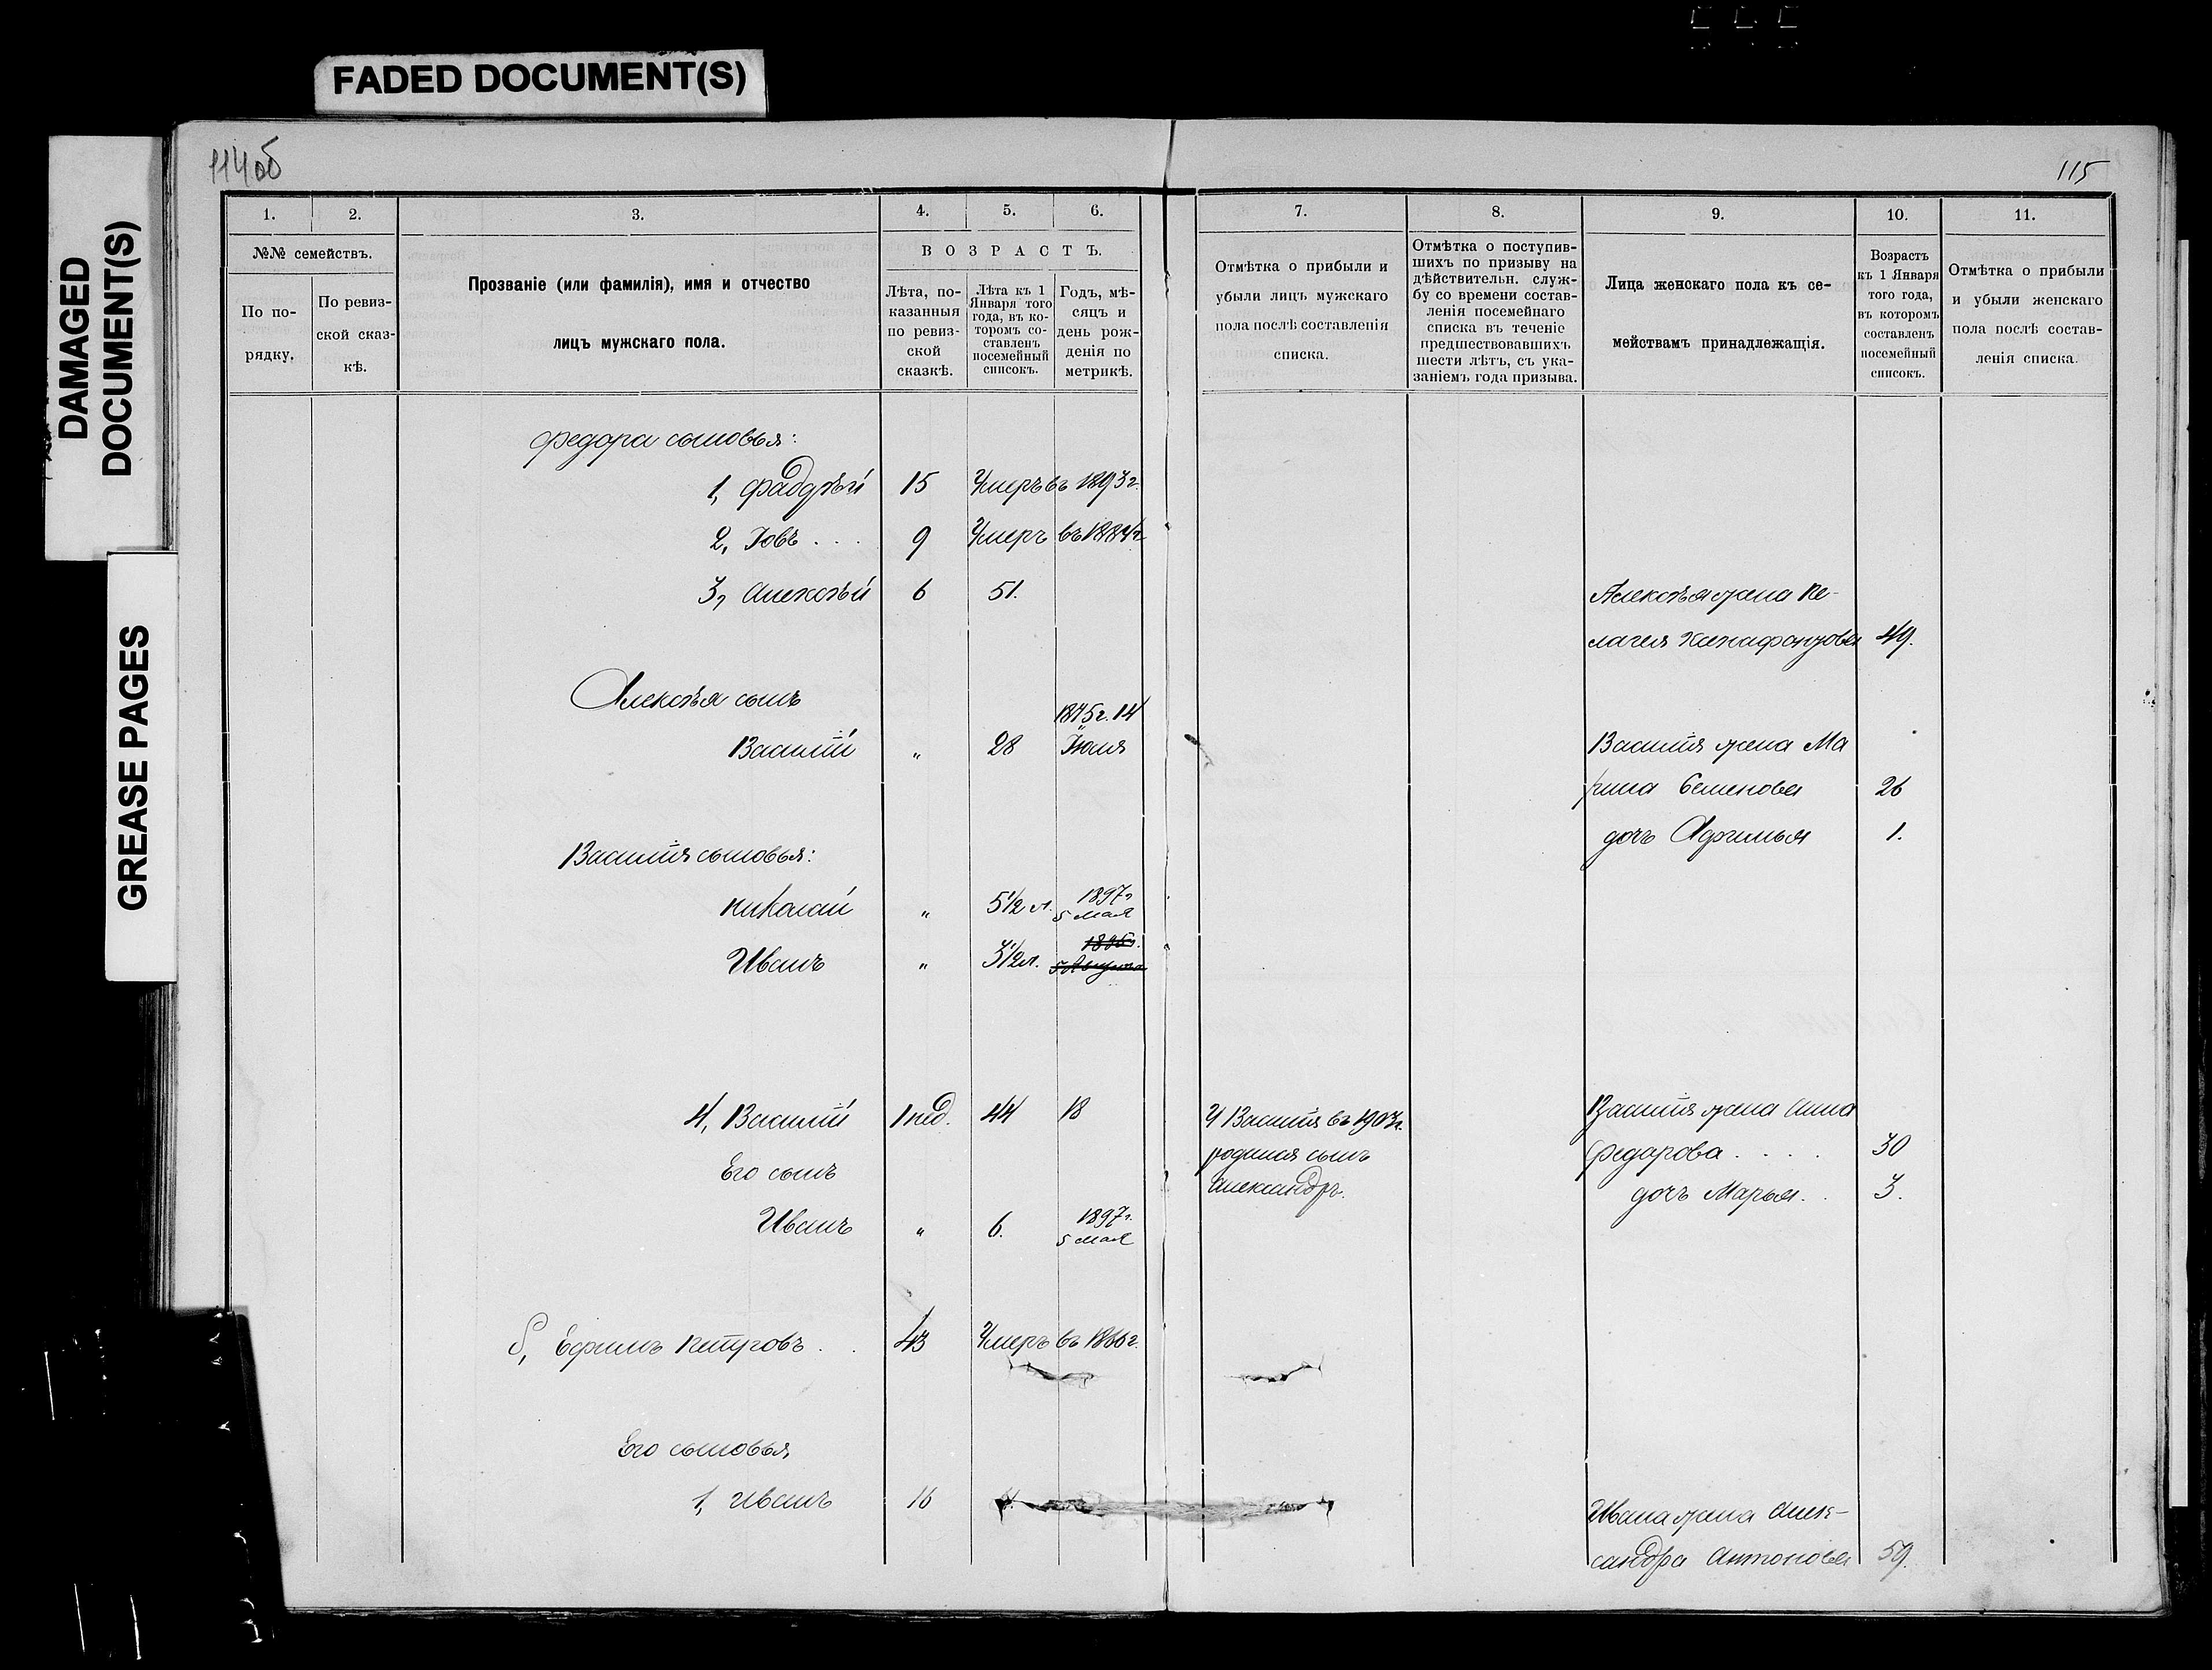 FADED DOCUMENT(S)
DAMAGED
DOCUMENT(S)
GREASE PAGES
114об
115
1.
2.
3.
4.
5.
6.
7.
8.
9.
10.
11.
№№ семействъ.
По по-
рядку.
По ревиз-
ской сказ-
кѣ.
Прозваніе (или фамилія), имя и отчество
лицъ мужскаго пола.
ВОЗРАСТЪ.
Лѣта, по-
казанныя
по ревиз-
ской
сказкѣ.
Лѣта къ 1
Января того
года, въ ко-
торомъ со-
ставленъ
посемейный
списокъ.
Годъ, мѣ-
сяцъ и
день рож-
денія по
метрикѣ.
Отмѣтка о прибыли и
убыли лицъ мужскаго
пола послѣ составленія
списка.
Отмѣтка о поступив-
шихъ по призыву на
дѣйствительн. служ-
бу со времени состав-
ленія посемейнаго
списка въ теченіе
предшествовавшихъ
шести лѣтъ, съ ука-
заніемъ года призыва.
Лица женскаго пола къ се-
мействамъ принадлежащія.
Возрастъ
къ 1 Января
того года,
въ которомъ
составленъ
посемейный
списокъ.
Отмѣтка о прибыли
и убыли женскаго
пола послѣ состав-
ленія списка.
Федора сыновья:
1, Фаддѣй 15 Умеръ въ 1893 г.
2, Іовъ . . . 9 Умеръ въ 1884 г.
3, Алексѣй 6 51. Алексѣя жена Пе-
лагея Ксенофонтова 49.
Алексѣя сынъ
1875 г. 14
Василій " 28 Іюля Василія жена Ма
рина Семенова 26
дочь Афимья 1.
Василія сыновья:
Николай " 5 1/2 л. 1897 г.
5 Мая
Иванъ " 3 1/2 л. 1895 г.
5 Августа
4, Василій 1 нед. 44 18 У Василія въ 1903 г. Василія жена Анна
родился сынъ Федорова . . . . 30
Его сынъ Александръ. дочь Марья . . 3.
Иванъ " 6. 1897 г.
5 Мая
б, Ефимъ Петровъ . . 43 Умеръ въ 1866 г.
Его сыновья
1, Иванъ 16
Ивана жена Алек-
сандра Антонова 59.